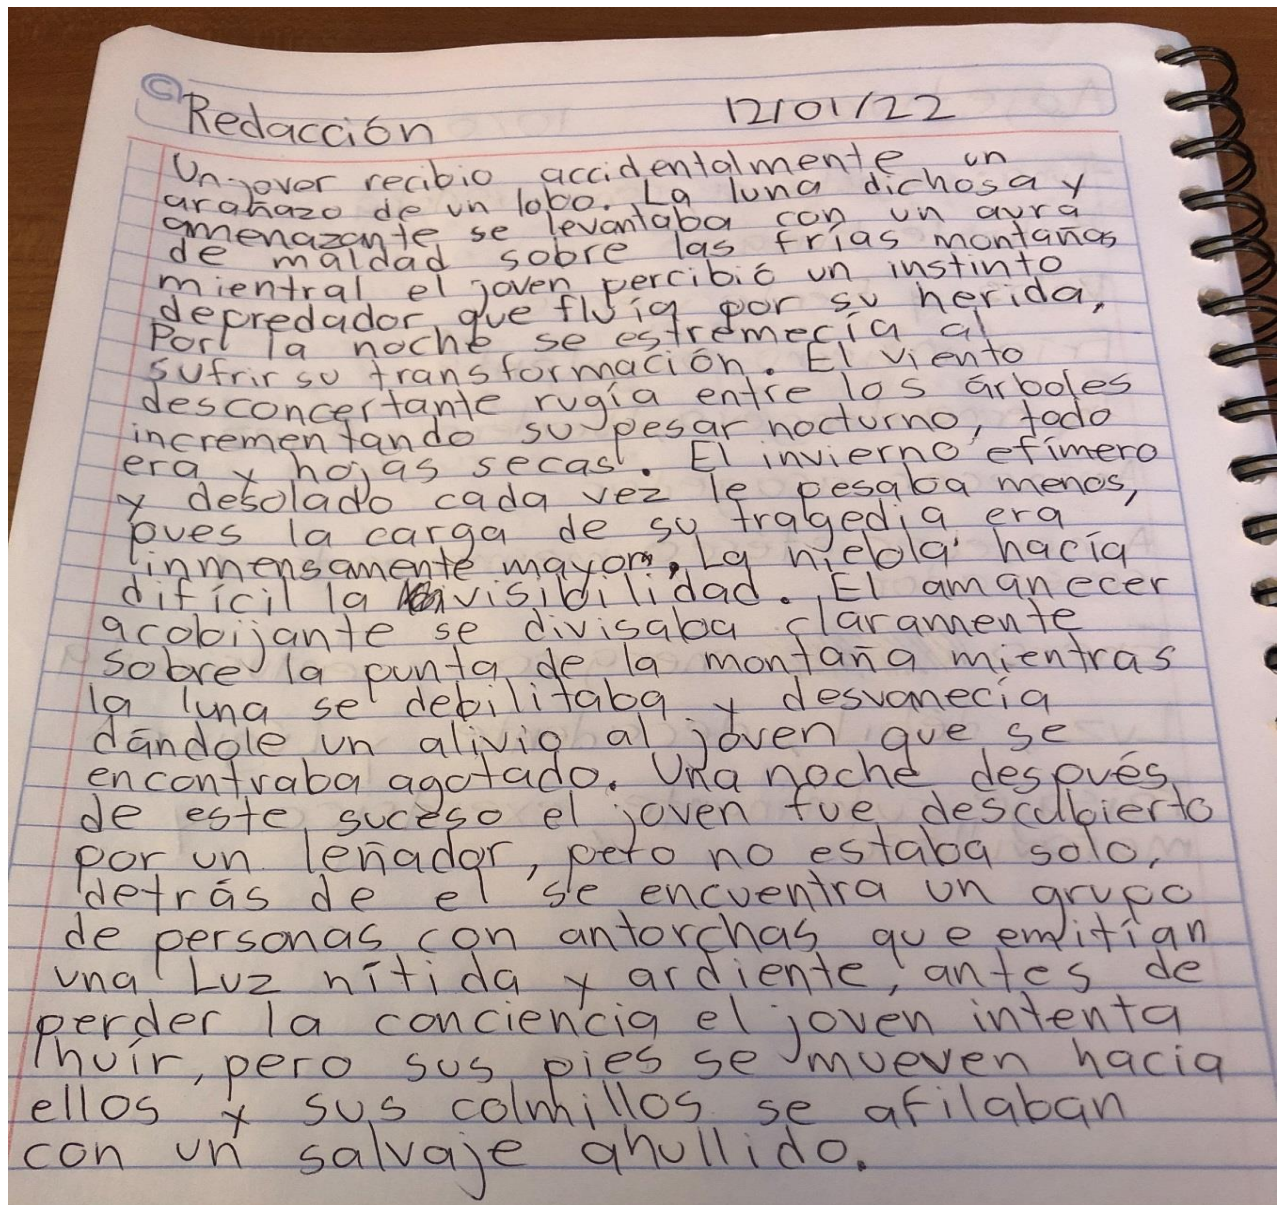 C
Redacción 12/01/22
Un jover recibio accidentalmente un
arañazo de un lobo. La luna dichosa y
amenazante se levantaba con un aura
de maldad sobre las frías montañas
mientral el joven percibió un instinto
depredador que fluía por su herida,
Porl la noche se estremecía al
sufrir su transformación. El viento
desconcertante rugía entre los árboles
incrementando su pesar nocturno, todo
era y hojas secas. El invierno efímero
y desolado cada vez le pesaba menos,
pues la carga de su tragedia era
inmensamente mayor. La niebla hacía
difícil la visibilidad. El amanecer
acobijante se divisaba claramente
sobre la punta de la montaña mientras
la luna se debilitaba y desvanecía
dándole un alivio al joven que se
encontraba agotado. Una noche después
de este suceso el joven fue descubierto
por un leñador, pero no estaba solo,
detrás de el se encuentra un grupo
de personas con antorchas que emitían
una Luz nítida y ardiente, antes de
perder la conciencia el joven intenta
huír, pero sus pies se mueven hacia
ellos y sus colmillos se afilaban
con un salvaje ahullido.